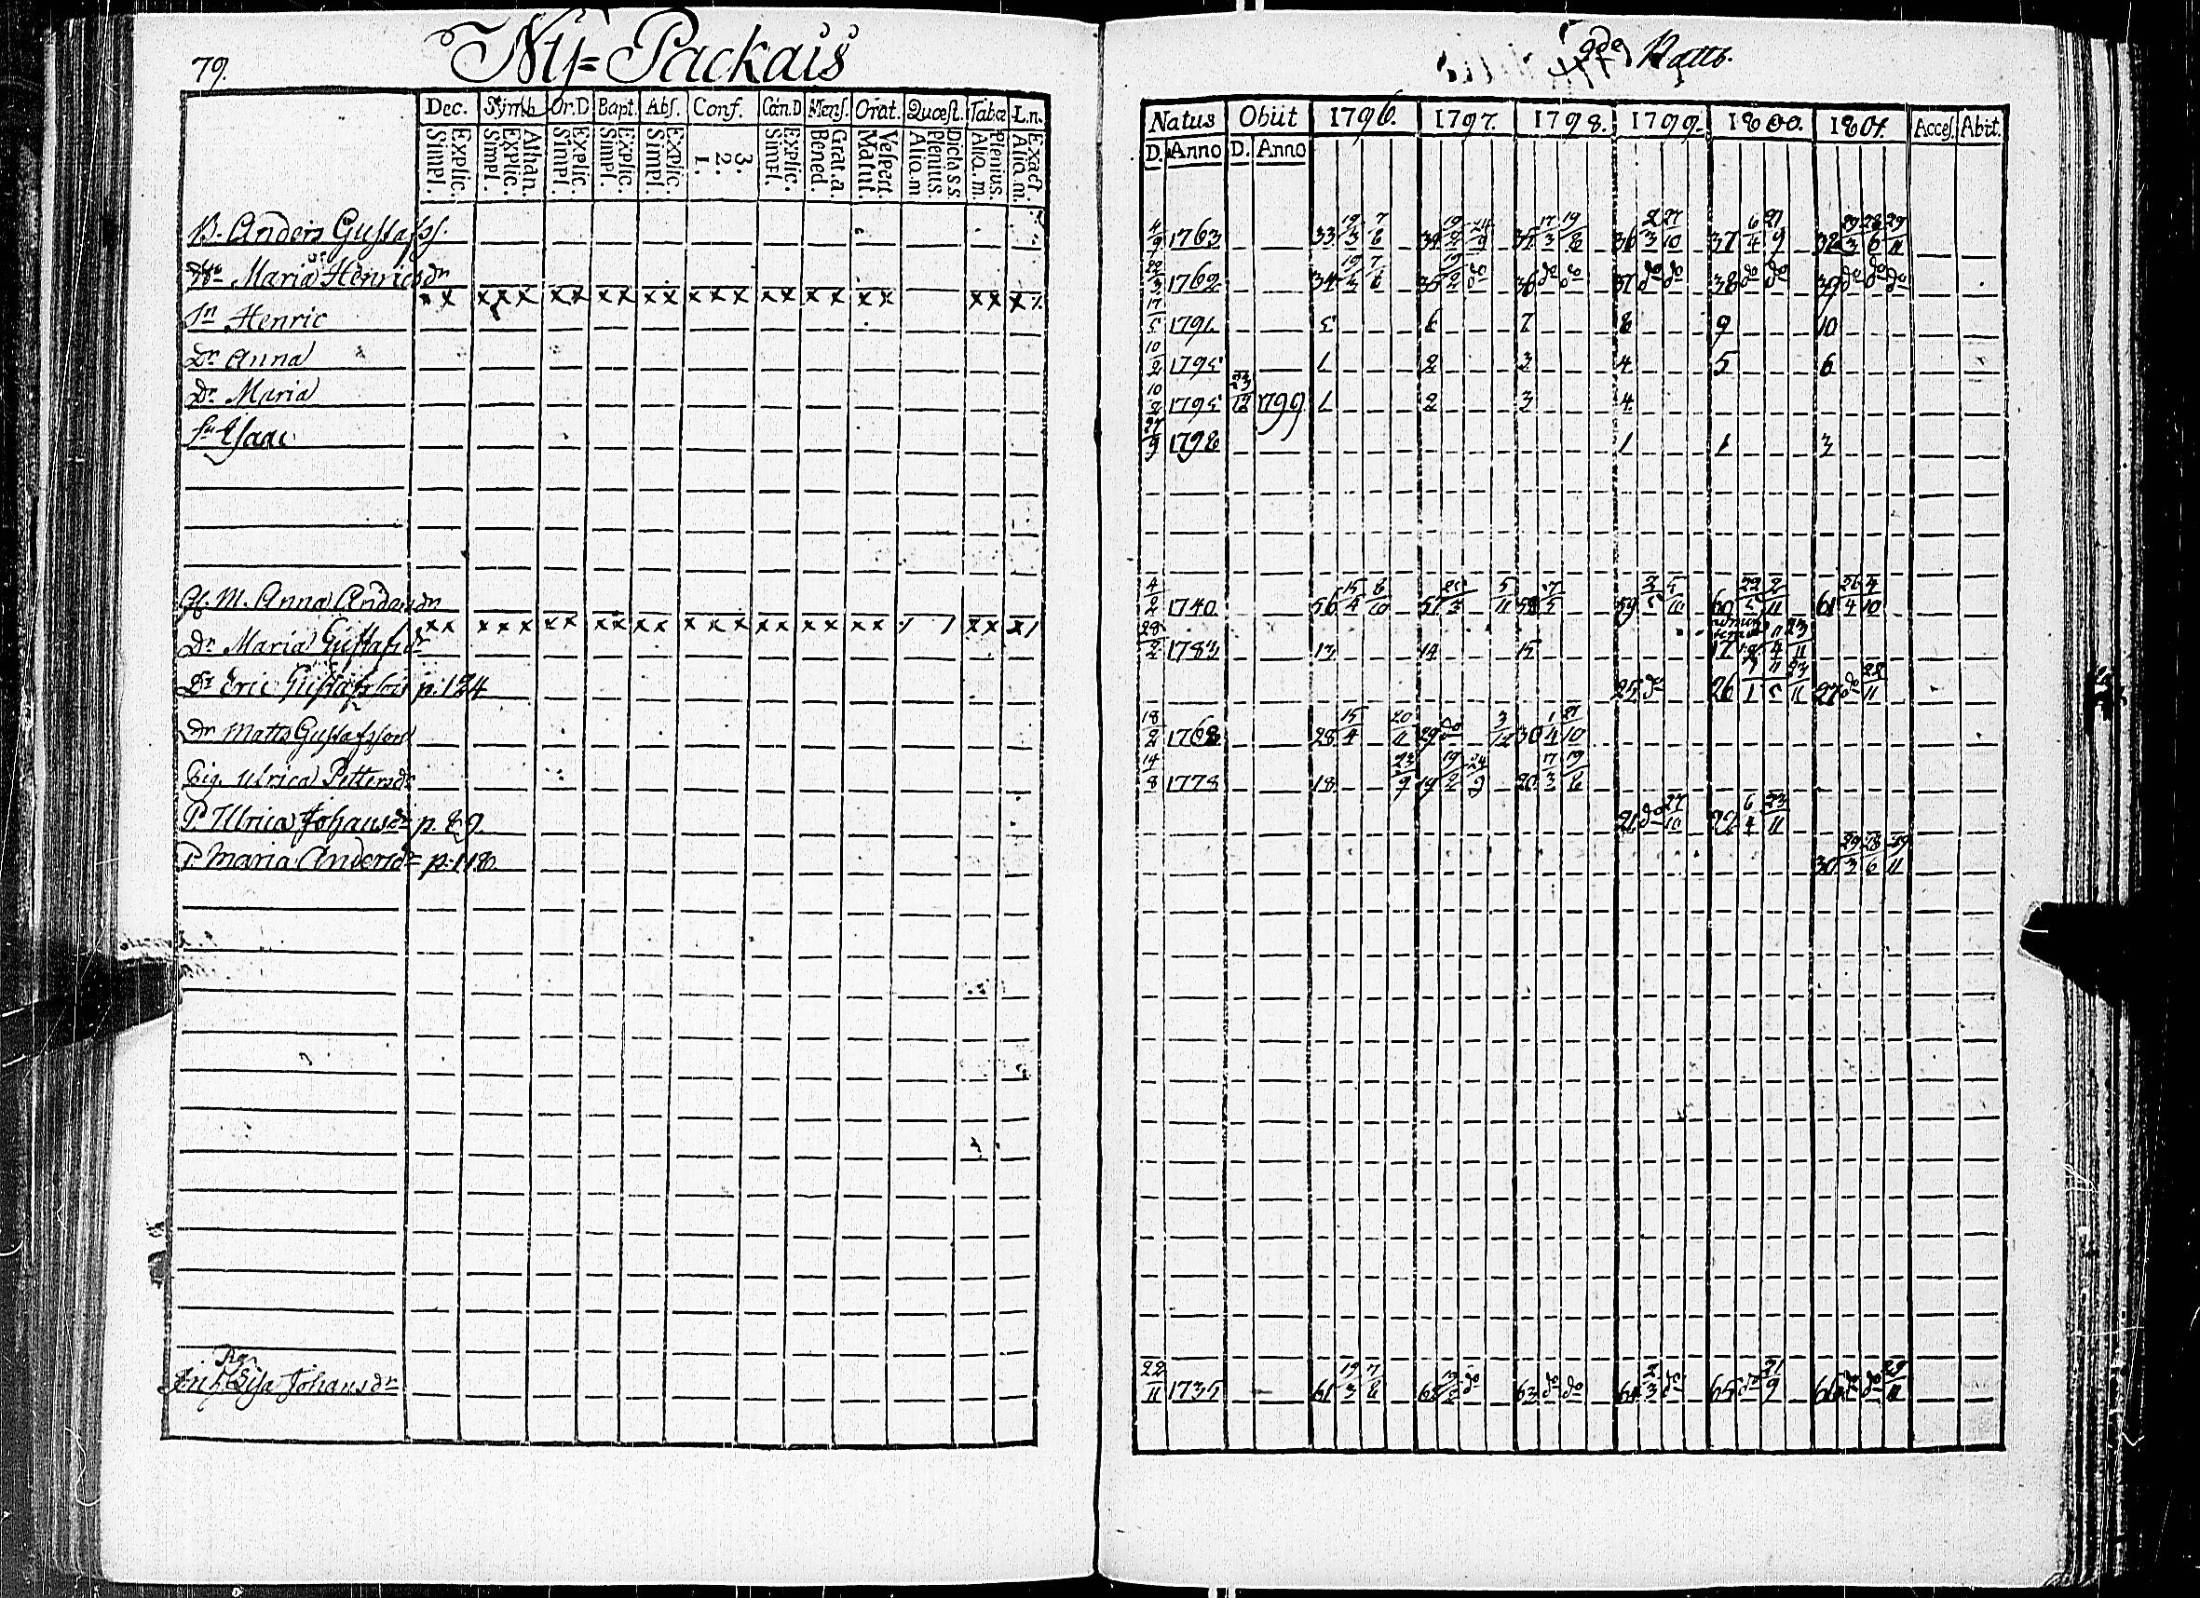 79. Nÿ=Packais
Dec. Symb. Or.D. Bapt. Abs. Conf. Cœn.D Mens. Orat. Quæst. Tabæ L.n.
Explic. Simpl. Athan. Explic. Simpl. Explic. Simpl. Explic. Simpl. Explic. Simpl. 3. 2. 1. Explic. Simpl. Grat.a. Bened. Vespert. Matut. Dictass. Plenius. Aliq.m Plenius. Aliq.m. Exact Aliq.m.
B. Anders Gustafss.
Maria Henricsdr
Sn Henric
Dr Anna
Dr Maria
Sn Esaac
Gl. M. Anna Andersdr
Dr Maria Gustafsdr
Dr Eric Gustafsson p. 124
Dr Matts Gustafsson
Pig. Ulrica Pettersdr
P Ulrica Johansdr p. 89.
P Maria Andersdr p. 118.
Lisa Johansdr
Rotte.
Natus Obiit 1796. 1797. 1798. 1799. 1800. 1801. Acces. Abit.
D. Anno D. Anno
4/9 1763 33 19/3 7/8 34 35 17/3 19/8 36 2/3 27/10 37 6/4 21/9 38 29/3 28/6 29/11
22/3 1762 34 19/3 7/8 35 36 do do 37 do do 38 do do 39 do do do
17/5 1791 5 6 7 8 9 10
10/2 1795 1 2 3 4 5 6
10/2 1795 23/12 1799 1 2 3 4
27/9 1798 1 1 3
4/2 1740 56 15/4 6/10 57 5/11 58 59 60 29/5 2/11 61 26/4 4/10
28/2 1783 13 14 15 17
25 do 26 27 do 28/11
18/2 1768 28 15/4 20/11 29 do 3/12 30 1/4 21/10
14/8 1778 18 23/9 19 19/2 24/9 20 17/3 19/8
21 do 27/10 22 6/4 23/11
30 29/3 28/6 29/11
22/11 1735 61 19/3 7/8 62 do 63 do do 64 2/3 do 65 do 21/9 66 do do 29/11